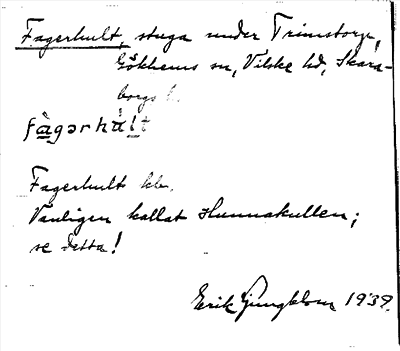 Fagerhult, stuga under Trimstorp,
Gökhems sn, Vilske hd, Skara-
borgs l.
fàgərhàlt
Fagerhult
Vanligen kallat Hunnakullen;
se detta!
Erik Ljungblom 1939.